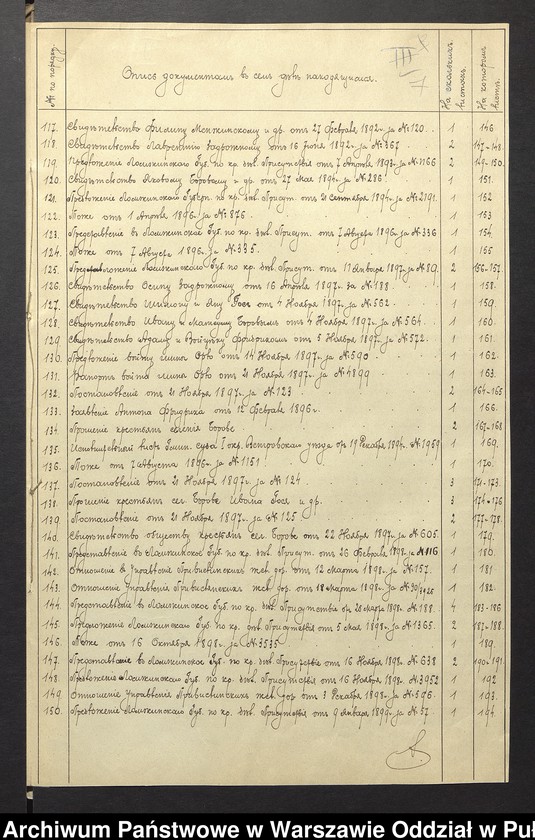 № по порядку.
Опись документамъ въ семъ дѣлѣ находящимся.
III
На сколькихъ листахъ.
На которомъ листѣ.
117. Свидѣтельство Филиппу и др. отъ 27 Февраля 1892 г. за № 120. 1 146
118. Свидѣтельство Лаврентію отъ 16 1892 г. за № 367 2 147-148.
119. Предложеніе Ломжинскаго Губ. по кр. дѣл. Присутствія отъ 7 Апрѣля 1893 г. за № 1166 2 149-150.
120. Свидѣтельство Якову и др. отъ 27 Мая 1894 г. за № 286 1 151.
121. Предложеніе Ломжинскаго Губерн. по кр. дѣл. Присут. отъ 21 Сентября 1894 г. за № 2191. 1 152
122. Тоже отъ 1 Апрѣля 1896 г. за № 876. 1 153
123. Представленіе въ Ломжинское Губ. по кр. дѣл. Присут. отъ 7 Августа 1896 г. за № 336 1 154.
124. Тоже отъ 7 Августа 1896 г. за № 335. 1 155
125. Ломжинскаго Губ. по кр. дѣл. Присут. отъ 17 Января 1897 г. за № 89. 2 156-157.
126. Свидѣтельство Осипу отъ 16 Апрѣля 1897 г. за № 188. 1 158.
127. Свидѣтельство и отъ 4 Ноября 1897 г. за № 562. 1 159.
128. Свидѣтельство Ивану и отъ 4 Ноября 1897 г. за № 564. 1 160.
129. Свидѣтельство Адаму и Войцѣху отъ 5 Ноября 1897 г. за № 572. 1 161.
130. Предложеніе войту гмины отъ 14 Ноября 1897 г. за № 590 1 162.
131. Рапортъ войта гмины отъ 21 Ноября 1897 г. за № 4899 1 163.
132. Постановленіе отъ 21 Ноября 1897 г. за № 123 2 164-165
133. Заявленіе Антона Фридриха отъ 12 Февраля 1896 г. 1 166.
134. Прошеніе крестьянъ селенія Борове 2 167-168
135. Исполнительный листъ Гмин. суда I окр. уѣзда отъ 19 Декабря 1894 г. № 1959 1 169.
136. Тоже отъ 7 Августа 1896 г. за № 1151 1 170.
137. Постановленіе отъ 21 Ноября 1897 г. за № 124. 3 171-173.
138. Прошеніе крестьянъ сел. Борове Ивана и др. 3 174-176
139. Постановленіе отъ 21 Ноября 1897 г. за № 125 2 177-178.
140. Свидѣтельство обществу крестьянъ сел. Борове отъ 22 Ноября 1897 г. за № 605. 1 179.
141. Представленіе въ Ломжинское Губ. по кр. дѣл. Присут. отъ 26 Февраля 1898 г. за № 116 1 180.
142. Отношеніе въ Управленіе Привислинскихъ жел. дор. отъ 12 Марта 1898 г. за № 157. 1 181
143. Отношеніе Управленія Привислинскихъ жел. дор. отъ 18 Марта 1898 г. за № 1 182.
144. Представленіе въ Ломжинское Губ. по кр. дѣл. Присутствіе отъ 20 Марта 1898 г. за № 188. 4 183-186
145. Предложеніе Ломжинскаго Губ. по кр. дѣл. Присутствія отъ 5 Мая 1898 г. за № 1365. 2 187-188.
146. Тоже отъ 16 Октября 1898 г. за № 3535 1 189.
147. Представленіе въ Ломжинское Губ. по кр. дѣл. Присутствіе отъ 16 Ноября 1898 г. № 638 2 190-191.
148. Предложеніе Ломжинскаго Губ. по кр. дѣл. Присутствія отъ 16 Ноября 1898 г. № 3952 1 192
149. Отношеніе Управленія Привислинскихъ жел. дор. отъ 3 Декабря 1898 г. за № 596. 1 193.
150. Предложеніе Ломжинскаго Губ. по кр. дѣл. Присутствія отъ 9 Января 1899 г. за № 57 1 194
Archiwum Państwowe w Warszawie Oddział w Puł